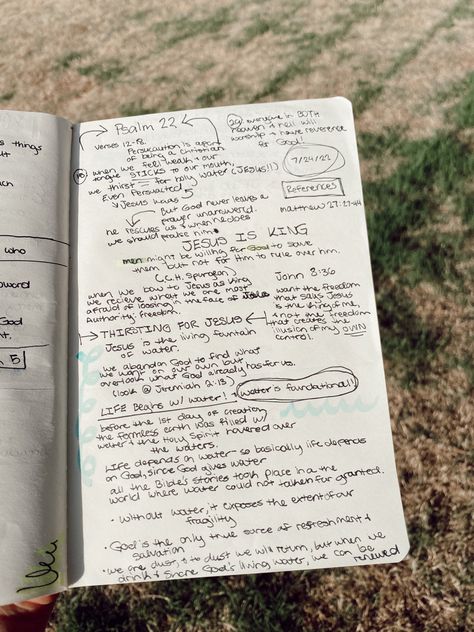 s things
ut
ach
who
oward
God
nt.
, 5
Psalm 22
verses 12-18.
Persucaution is apart
of being a christian
(15) when we feel weak & our
tongue STICKS to our mouth,
we thirst for holy water (JESUS!!)
Even Persuated
Jesus was
But God never leaves a
prayer unanswered.
he rescues us & when he does
we should praise him.
29) everyone in BOTH
heaven & hell will
worship & have reverence
for God!
7/24/22
References
matthew 27:27-44
JESUS IS KING
men might be willing for God to save
them but not for Him to rule over him.
(C.H. Spurgeon)
when we bow to Jesus as King
we recieve what we are most
afraid of loosing in the face of Jesus
authority: freedom.
John 8:36
want the freedom
that says Jesus
is the King of me,
& not the freedom
that creates the
illusion of my OWN
control.
THIRSTING FOR JESUS
Jesus is the living fountain
of water.
we abandon God to find what
we want on our own but
overlook what God already has for us.
(look @ Jeremiah 2:13)
LIFE Begins w/ water! water is foundational!
before the 1st day of creation
the formless earth was filled w/
water & the Holy Spirit hovered over
the waters.
LIFE depends on water so basically life depends
on God, since God gives water
all the Bible's stories took place in a the
world where water could not taken for granted.
• without water, it exposes the extent of our
fragility
• God is the only true sorce of refreshment &
salvation
• we are dust, & to dust we will return, but when we
drink & share God's living water, we can be renewed